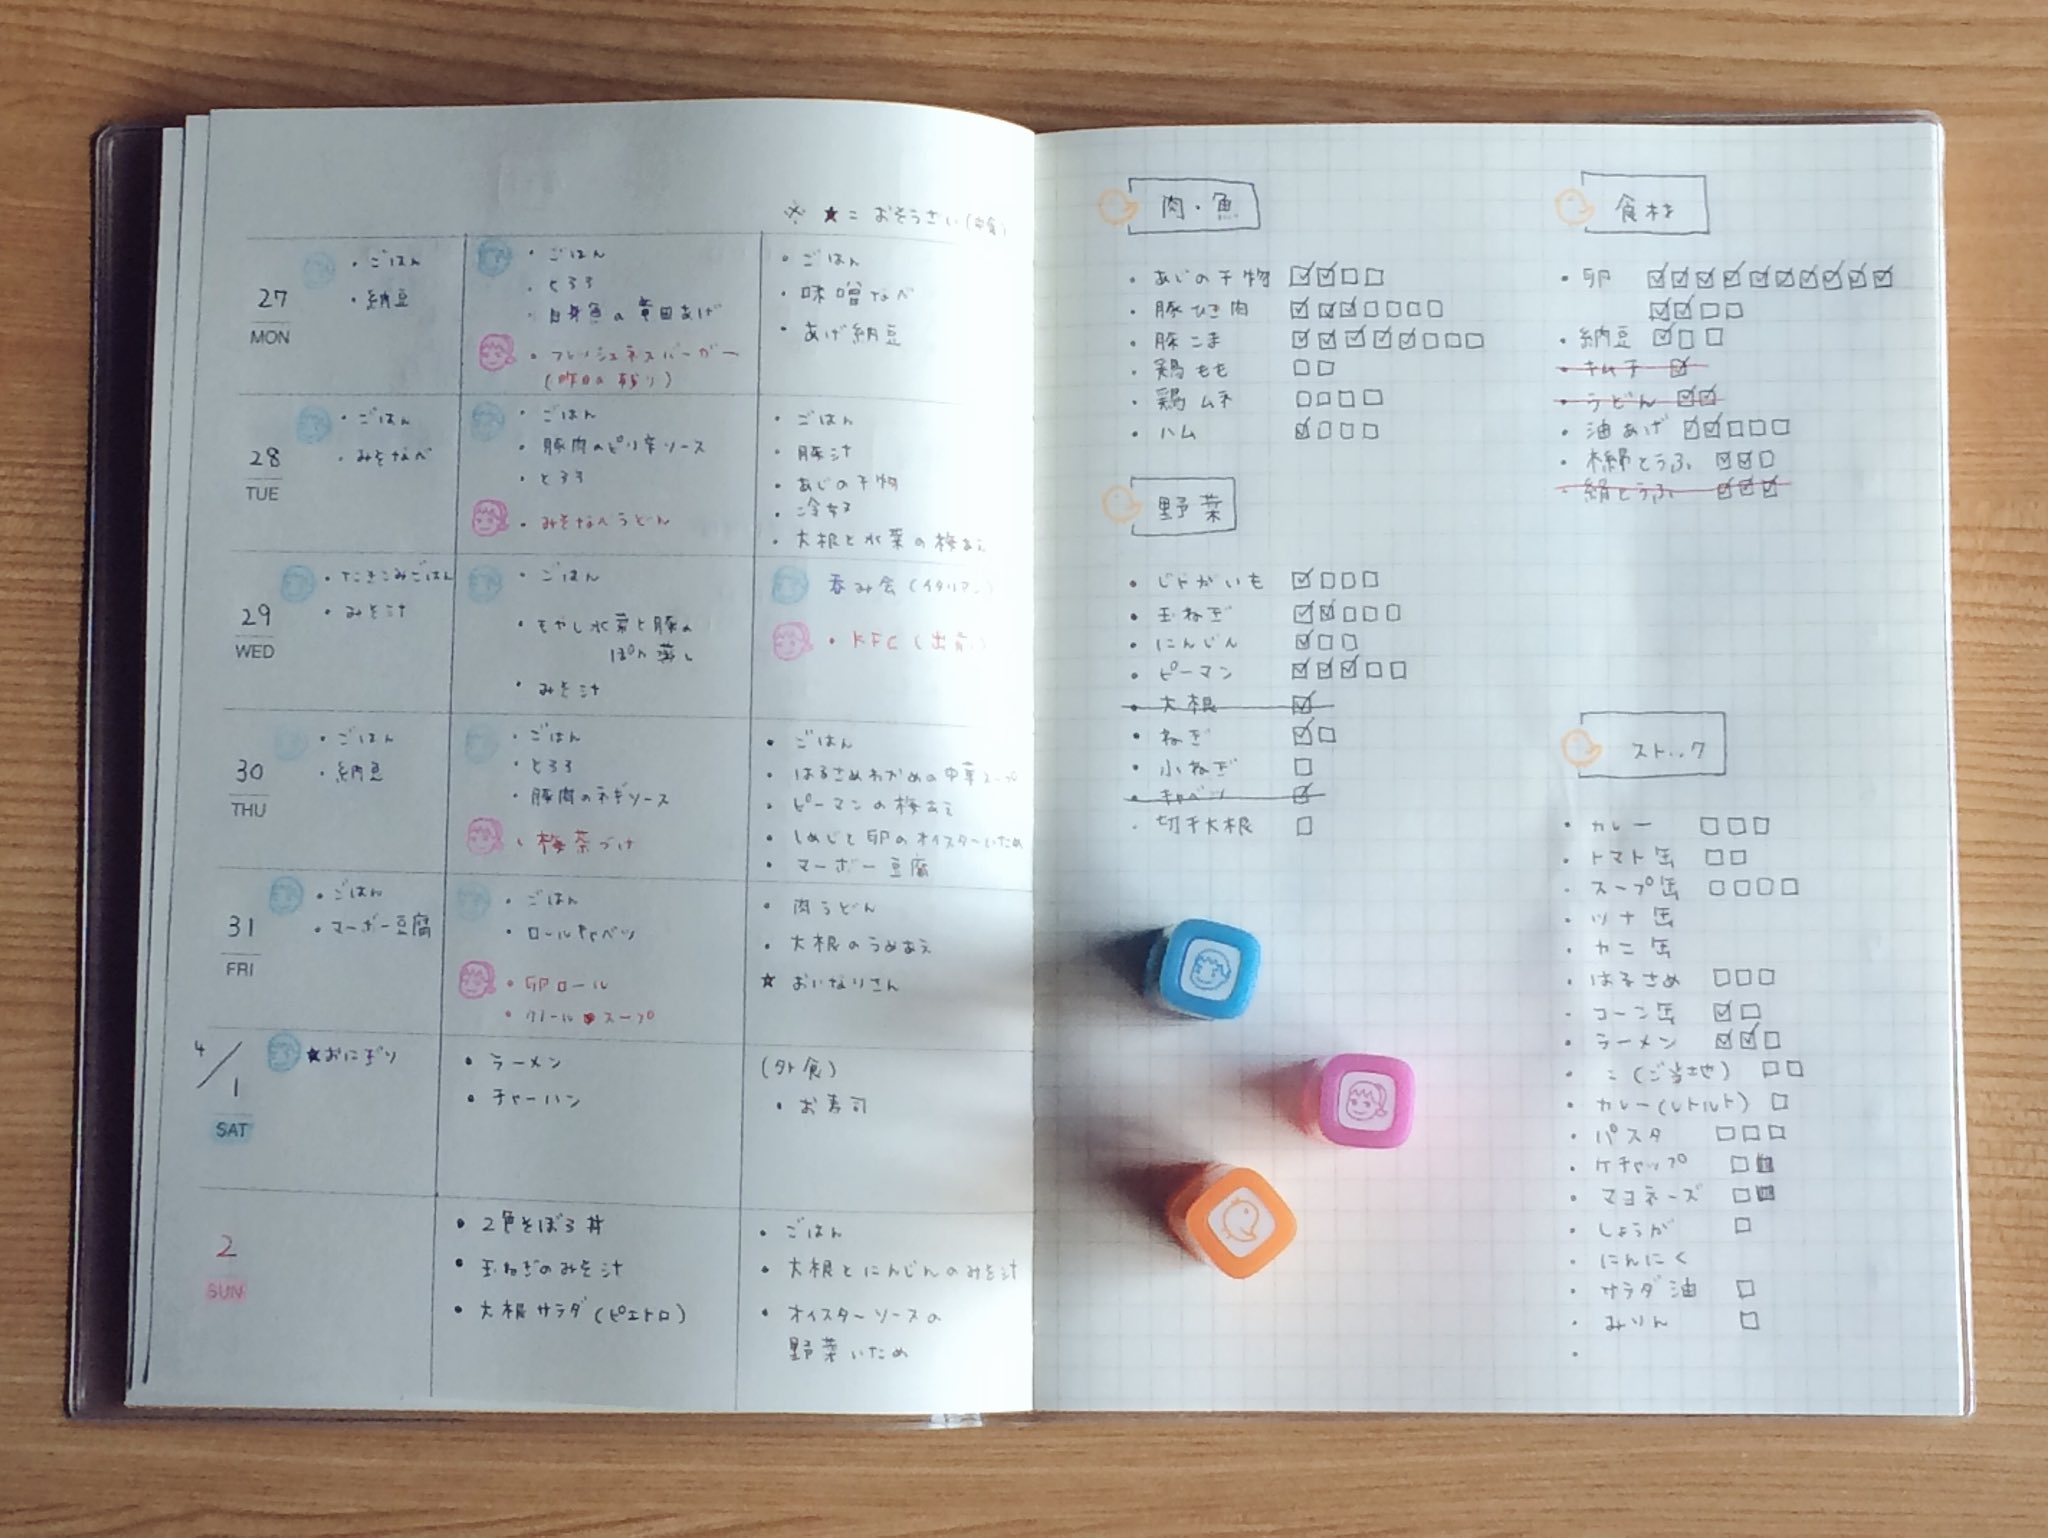 ※ ★= おそうざい(中食)
27
MON
・ごはん
・納豆
・ごはん
・とろろ
・白身魚の竜田あげ
・フレッシュネスバーガー
(昨日の残り)
・ごはん
・味噌なべ
・あげ納豆
28
TUE
・ごはん
・みそなべ
・ごはん
・豚肉のピリ辛ソース
・とろろ
・みそなべうどん
・ごはん
・豚汁
・あじの干物
・冷奴
・大根と水菜の梅あえ
29
WED
・たきこみごはん
・みそ汁
・ごはん
・もやし水菜と豚の
ぽん蒸し
・みそ汁
呑み会(イタリアン)
・KFC(出前)
30
THU
・ごはん
・納豆
・ごはん
・とろろ
・豚肉のネギソース
・梅茶づけ
・ごはん
・はるさめわかめの中華スープ
・ピーマンの梅あえ
・しめじと卵のオイスターいため
・マーボー豆腐
31
FRI
・ごはん
・マーボー豆腐
・ごはん
・ロールキャベツ
・卵ロール
・クノールスープ
・肉うどん
・大根のうめあえ
★おいなりさん
4/1
SAT
★おにぎり
・ラーメン
・チャーハン
(外食)
・お寿司
2
SUN
・2色そぼろ丼
・玉ねぎのみそ汁
・大根サラダ(ピエトロ)
・ごはん
・大根とにんじんのみそ汁
・オイスターソースの
野菜いため
肉・魚
・あじの干物
・豚ひき肉
・豚こま
・鶏もも
・鶏ムネ
・ハム
野菜
・じゃがいも
・玉ねぎ
・にんじん
・ピーマン
・大根
・ねぎ
・小ねぎ
・キャベツ
・切干大根
食材
・卵
・納豆
・キムチ
・うどん
・油あげ
・木綿とうふ
・絹とうふ
ストック
・カレー
・トマト缶
・スープ缶
・ツナ缶
・カニ缶
・はるさめ
・コーン缶
・ラーメン
・〃(ご当地)
・カレー(レトルト)
・パスタ
・ケチャップ
・マヨネーズ
・しょうが
・にんにく
・サラダ油
・みりん